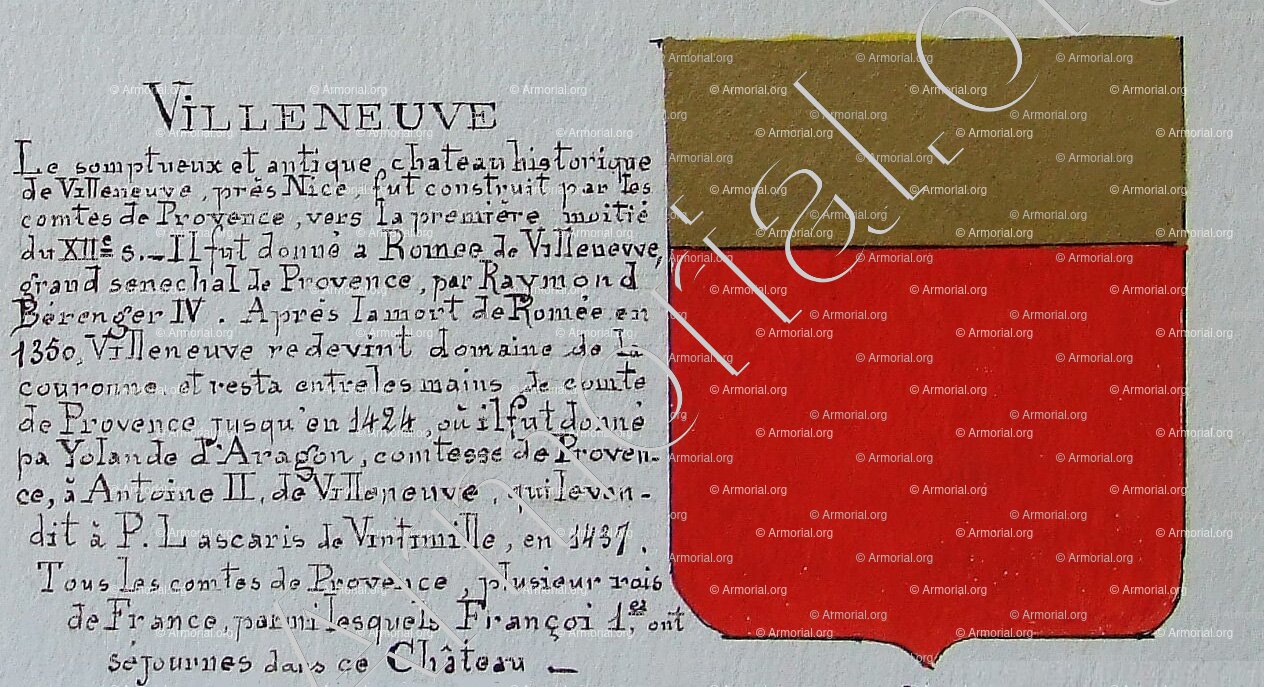 VILLENEUVE
Le somptueux et antique chateau historique
de Villeneuve, près Nice, fut construit par les
comtes de Provence, vers la première moitié
du XIIe s. _ Il fut donné a Romee de Villeneuve,
grand senechal de Provence, par Raymond
Bérenger IV. Après la mort de Romée en
1350, Villeneuve redevint domaine de la
couronne et resta entre les mains de comte
de Provence jusqu'en 1424, où il fut donné
pa Yolande d'Aragon, comtesse de Proven-
ce, à Antoine II, de Villeneuve, qui le ven-
dit à P. Lascaris de Vintimille, en 1437.
Tous les comtes de Provence, plusieur rois
de France, parmi lesquels Françoi 1er, ont
séjournes dans ce Château _
© Armorial.org
Armorial.org